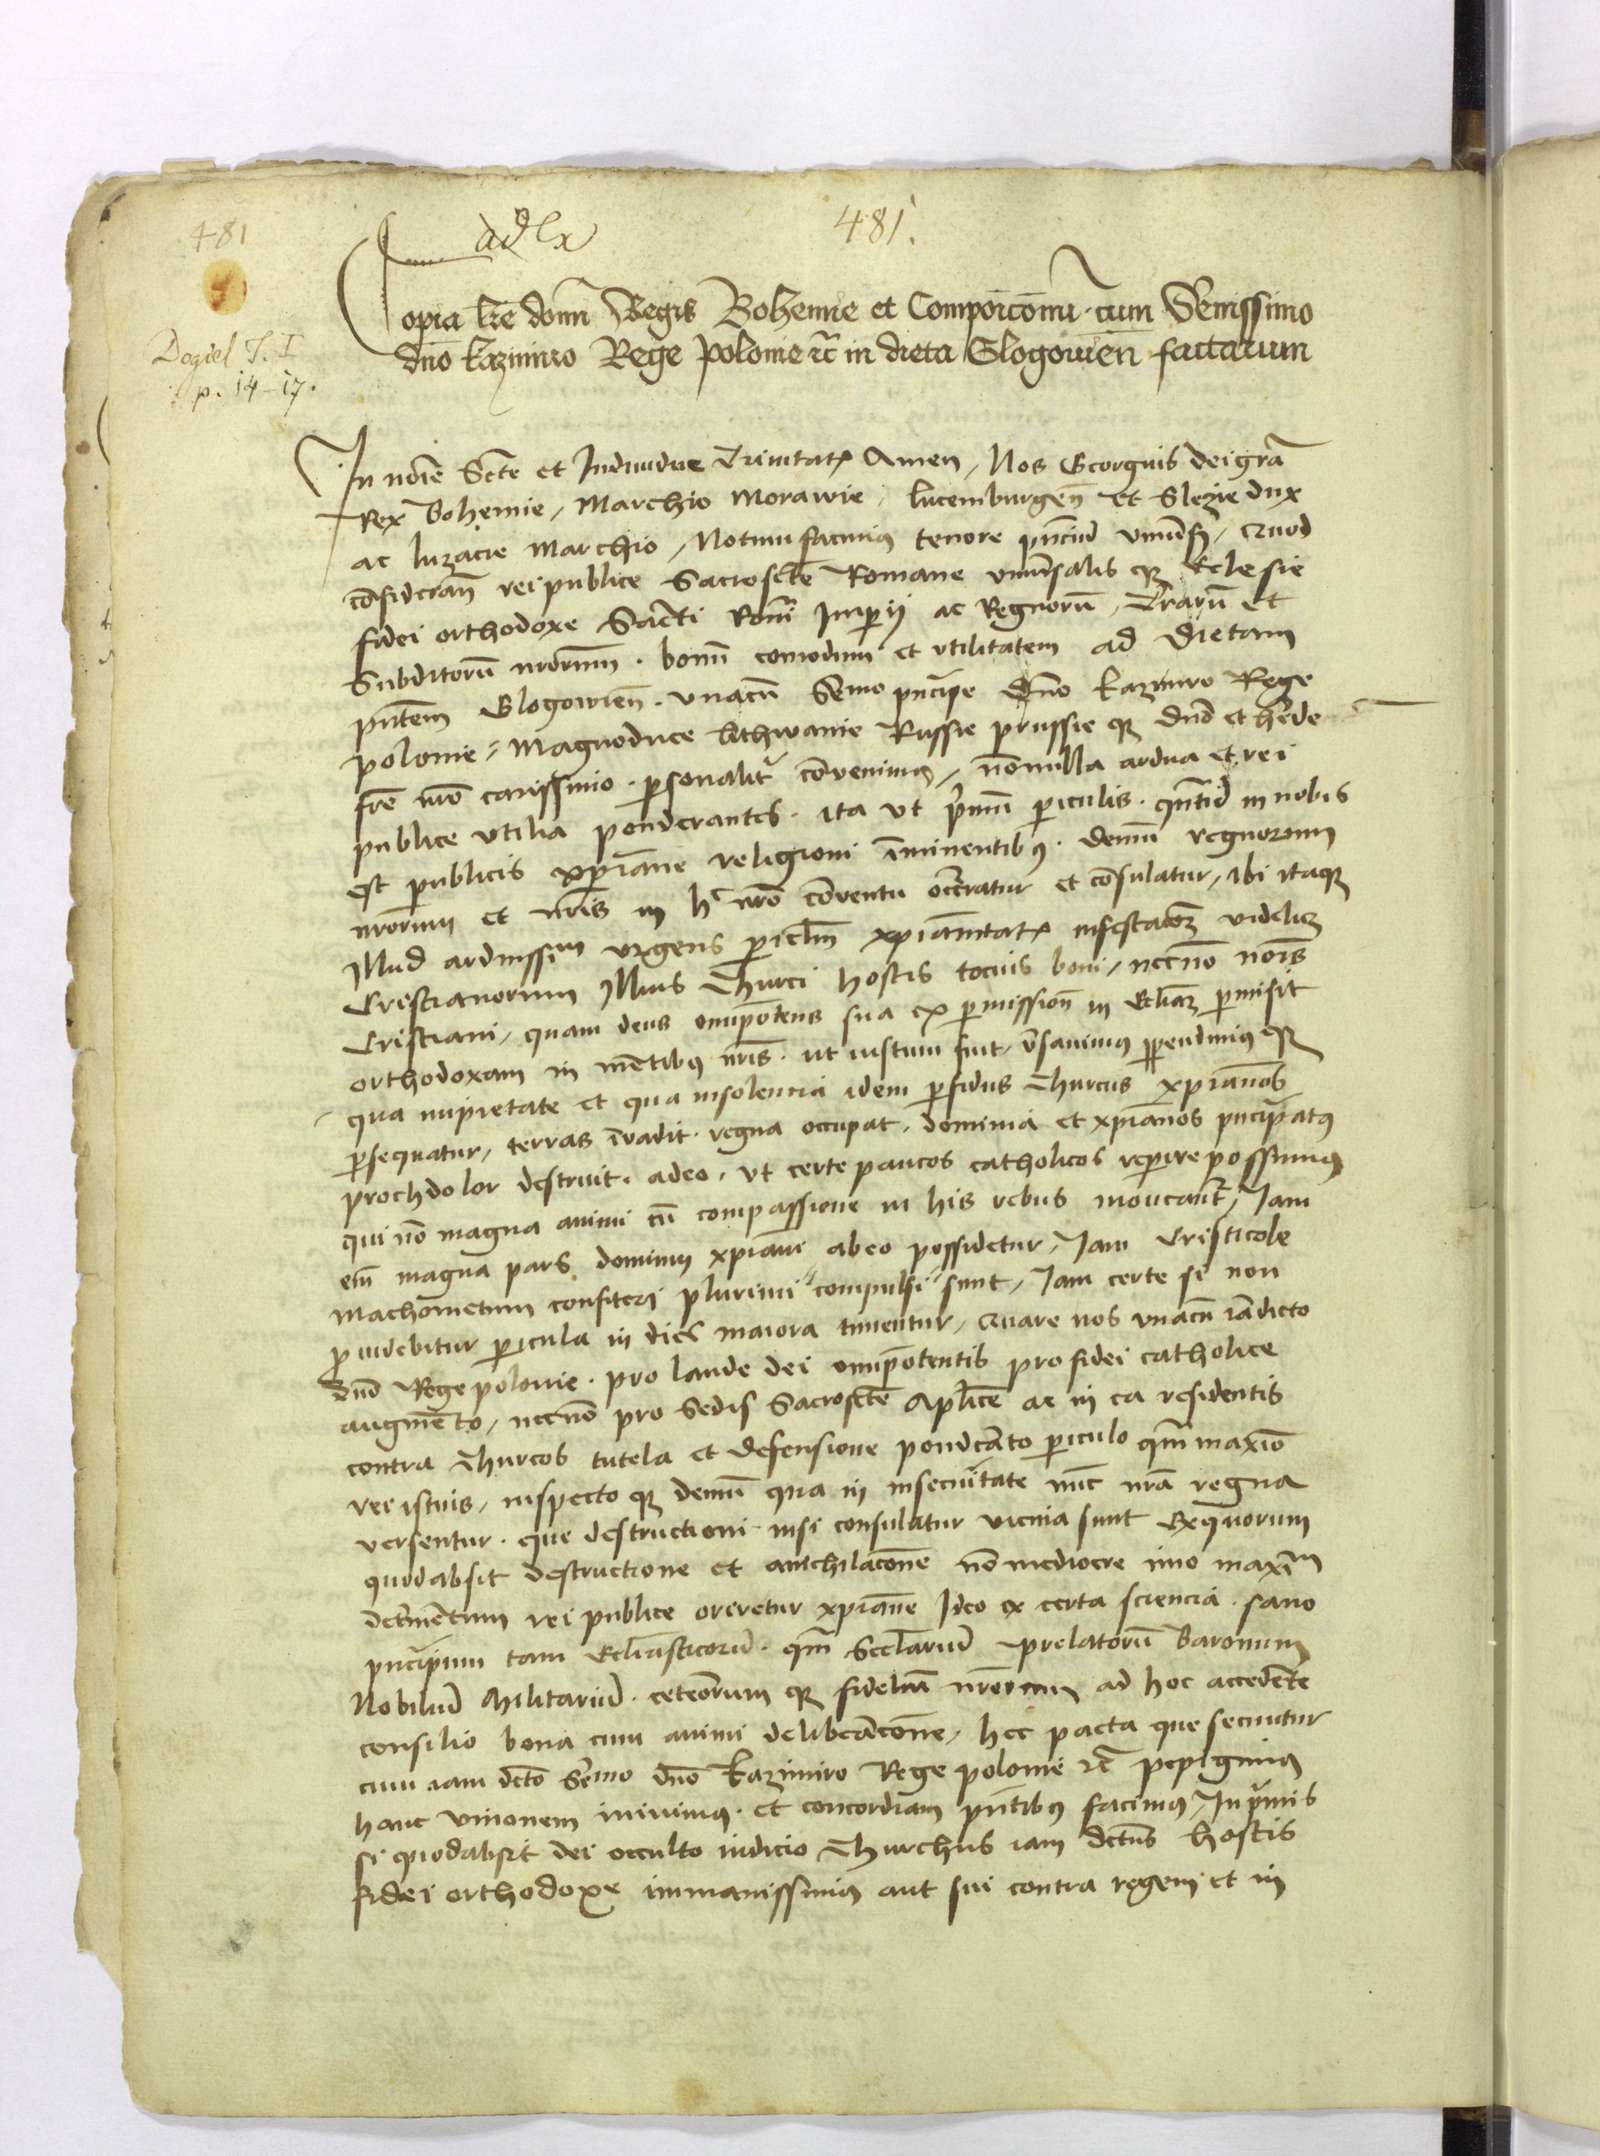 481
ad lx
481.
Dogiel T. I
p. 14–17.
Copia lre domi Regis Bohemie et Compoicomu cum Sermissimo
dno kazimiro Rege Polonie rc in dieta Glogowien factarum
In noie Scte et Indiuidue Trinitatis Amen, Nos Georgius dei gra
Rex Bohemie, Marchio Morawie, lucemburgen et Slezie dux
ac luzacie Marchio, Notum facimus tenore pnciu vniuersis, Quod
consideran rei publice Sacroscte Romane vniuersalis qz Eclesie
fidei orthodoxe Sacti Romi Imperij ac Regnorum, Trarum et
Subditorum nrorum. bonum comodum et vtilitatem ad dietam
pntem Glogowien. vnacum Sermo pncipe dno kazimiro Rege
polonie, Magnoduce lithwanie Russie prussie qz dno et herede
fre nro carissimo. personaliter conuenimus, nonnulla ardua et rei
publice vtilia ponderantes. ita vt primum periculis. quantum in nobis
est publicis xpiane religioni imminentibus. demum regnorum
nrorum et nris in hoc nro conuentu occuratur et consulatur, Ibi itaqz
Illud arduissimum vrgens periclm xpianitatis infestacoem videlicet
Cristianorum Illius Thurci hostis tocius boni, necnon nois
Cristiani, quam deus omnipotens sua ex permissione in Ecliam permisit
orthodoxam in mentibus nris. ut iustum fuit, versauimus perpendimus qz
qua impietate et qua insolencia idem perfidus Thurcus xpianos
persequatur, terras inuadit. regna occupat. dominia et xpianos pncipatus
prochdolor destruit. adeo. vt certe paucos catholicos reperire possumus
qui non magna animi cum compassione in his rebus moueantur, Iam
eni magna pars dominij xpiani ab eo possidetur, Iam Cristicole
Machometum confiteri plurimi compulsi sunt, Iam certe si non
prouidebitur pericula in dies maiora timentur, Quare nos vnacum iadicto
dno Rege polonie. pro laude dei omnipotentis pro fidei catholice
augmento, necnon pro Sedis Sacroscte Aplice ac in ea residentis
contra Thurcos tutela et defensione ponderato periculo qm maximo
rei istius, inspecto qz demum qua in insecuritate nunc nra regna
versentur. que destructioni nisi consulatur vicina sunt Ex quorum
quod absit destructione et anichilacone non mediocre imo maximum
detrimentum rei publice oriretur xpiane Ideo ex certa sciencia. sano
pncipum tam Ecliasticoru. qm Secularium prelatorum Baronum
Nobilium Militarium. ceterorum qz fidelium nrorum ad hoc accedente
consilio bona cum animi deliberacone, hec pacta que secuntur
cum iam dcto Sermo dno kazimiro Rege polonie rc pepigimus
hanc vnionem iniuimus. et concordiam pntibus facimus, Inprimis
si quod absit dei occulto iudicio Thurchus iam dctus hostis
fidei orthodoxe immanissimus aut sui contra regem et in